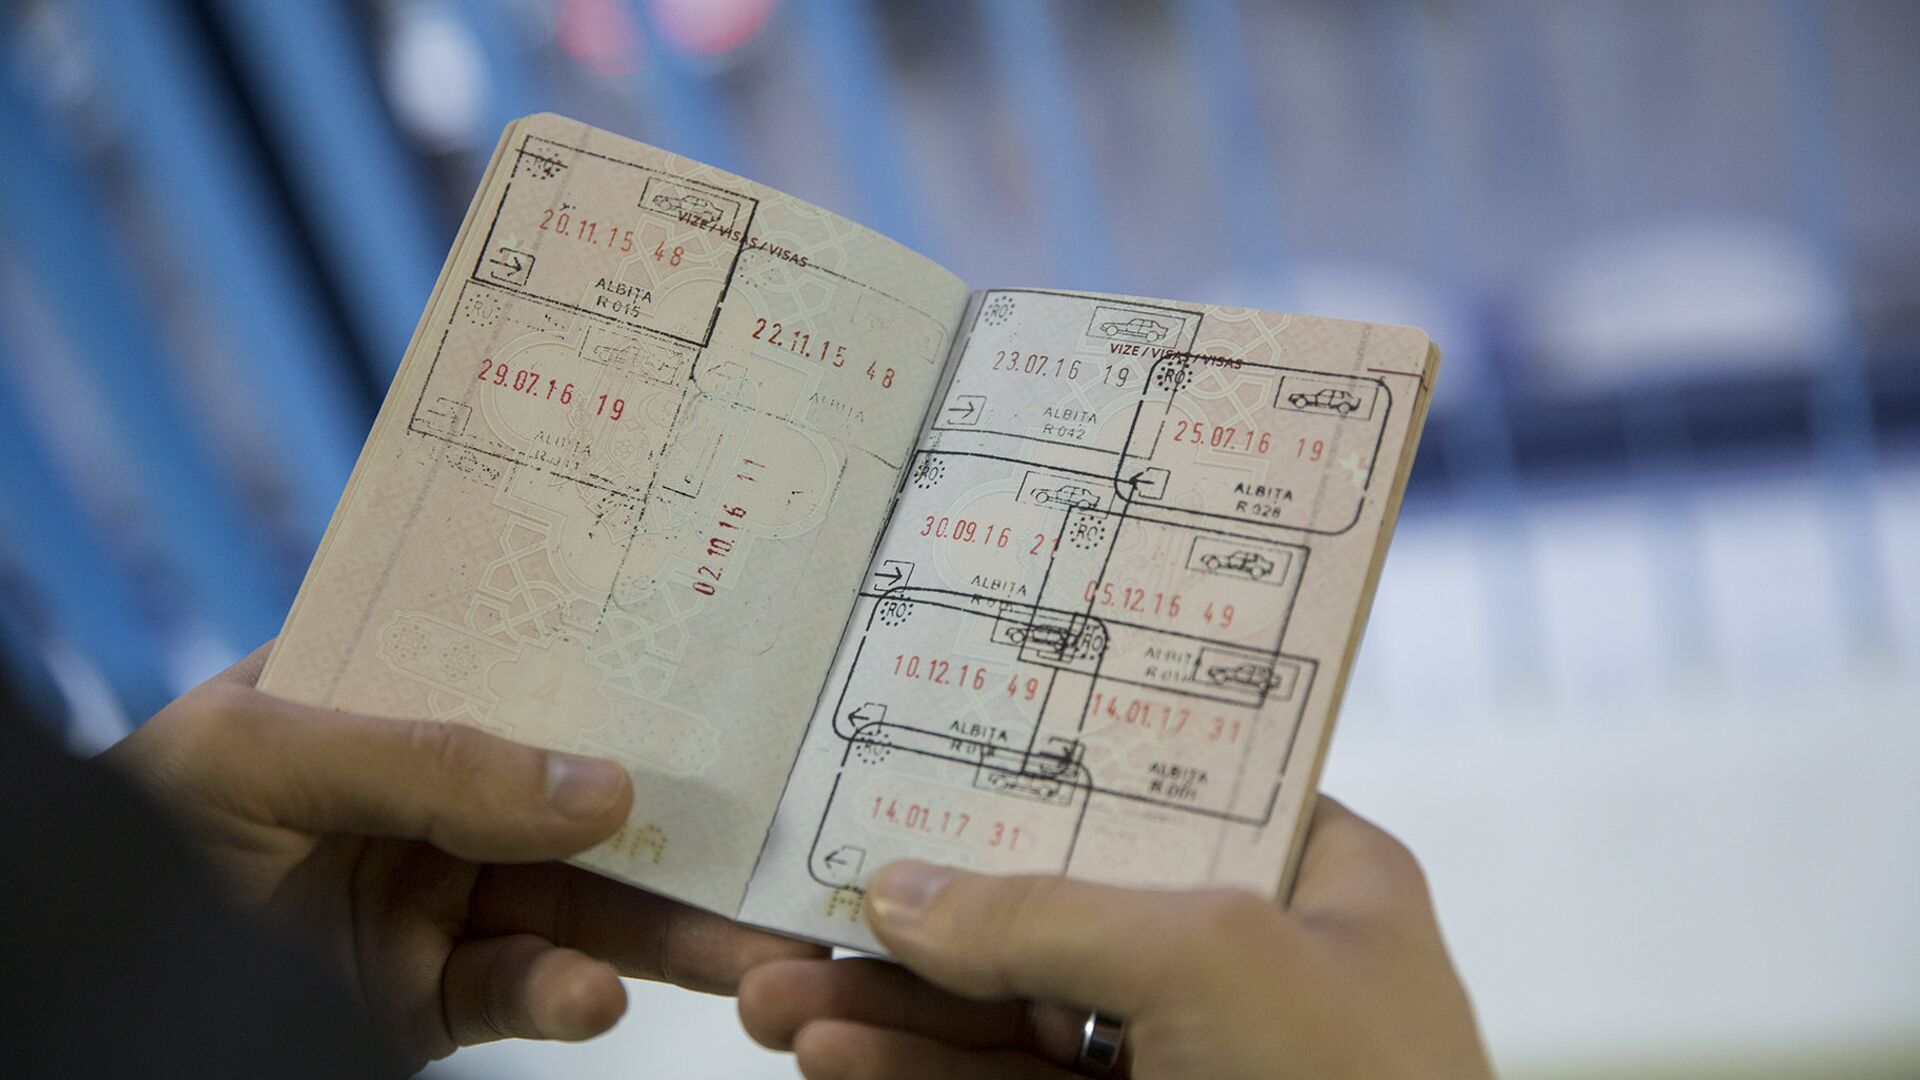 RO
20.11.15 48
VIZE / VISAS / VISAS
ALBIȚA
R 015
22.11.15 48
ALBIȚA
RO
29.07.16 19
ALBIȚA
02.10.16 11
RO
23.07.16 19
VIZE / VISAS / VISAS
ALBIȚA
R 042
RO
25.07.16 19
ALBIȚA
R 028
RO
30.09.16 21
ALBIȚA
RO
05.12.16 49
ALBIȚA
RO
10.12.16 49
ALBIȚA
RO
14.01.17 31
ALBIȚA
RO
14.01.17 31